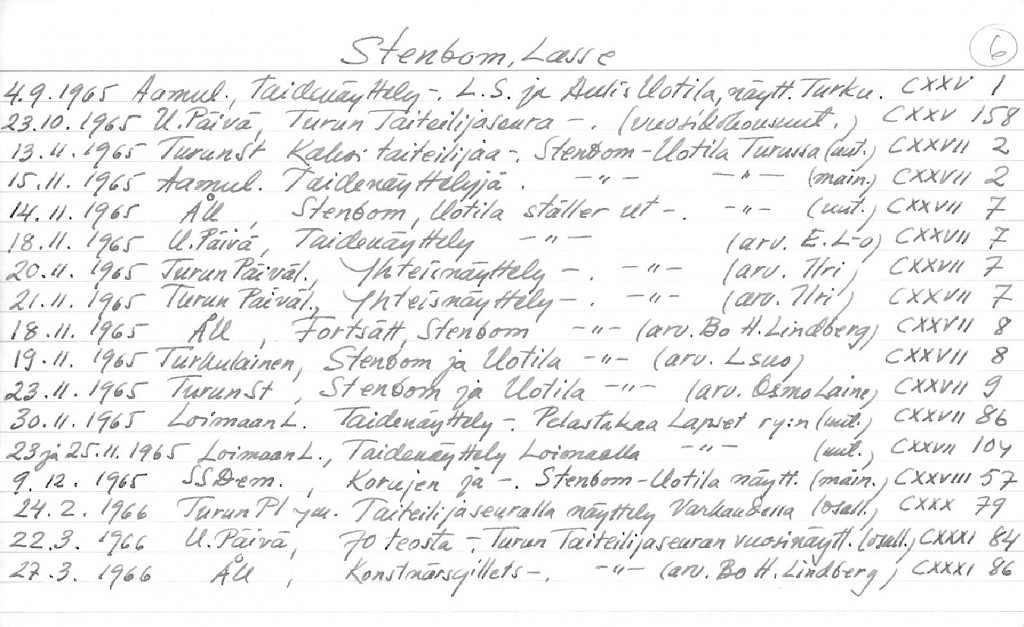 Stenbom, Lasse
6
4.9.1965 Aamul., Taidenäyttely-. L.S. ja Aulis Uotila, näytt. Turku. CXXV 1
23.10.1965 U.Päivä, Turun Taiteilijaseura -. (vuosikokousuut.) CXXV 158
13.11.1965 TurunSt Kaksi taiteilijaa-. Stenbom-Uotila Turussa (uut.) CXXVII 2
15.11.1965 Aamul. Taidenäyttelyjä. -"- -"- (main.) CXXVII 2
14.11.1965 ÅU, Stenbom, Uotila ställer ut -. -"- (uut.) CXXVII 7
18.11.1965 U.Päivä, Taidenäyttely -"- (arv. E.L-o) CXXVII 7
20.11.1965 TurunPäiväl., Yhteisnäyttely -. -"- (arv. Ilri) CXXVII 7
21.11.1965 Turun Päiväl., Yhteisnäyttely -. -"- (arv. Ilri) CXXVII 7
18.11.1965 ÅU, Fortsätt, Stenbom -"- (arv. Bo H. Lindberg) CXXVII 8
19.11.1965 Turkulainen, Stenbom ja Uotila -"- (arv. Lsuo) CXXVII 8
23.11.1965 TurunSt, Stenbom ja Uotila -"- (arv. Osmo Laine) CXXVII 9
30.11.1965 Loimaan L. Taidenäyttely -. Pelastakaa Lapset ry:n (uut.) CXXVII 86
23 ja 25.11.1965 Loimaan L., Taidenäyttely Loimaalla -"- (uut.) CXXVII 104
9.12.1965 SSDem., Korujen ja -. Stenbom-Uotila näytt. (main.) CXXVIII 57
24.2.1966 Turun Pl ym. Taiteilijaseuralla näyttely Varkaudessa (osall.) CXXX 79
22.3.1966 U.Päivä, 70 teosta -. Turun Taiteilijaseuran vuosinäytt. (osall.) CXXXI 84
27.3.1966 ÅU, Konstnärsgillets -. -"- (arv. Bo H. Lindberg) CXXXI 86